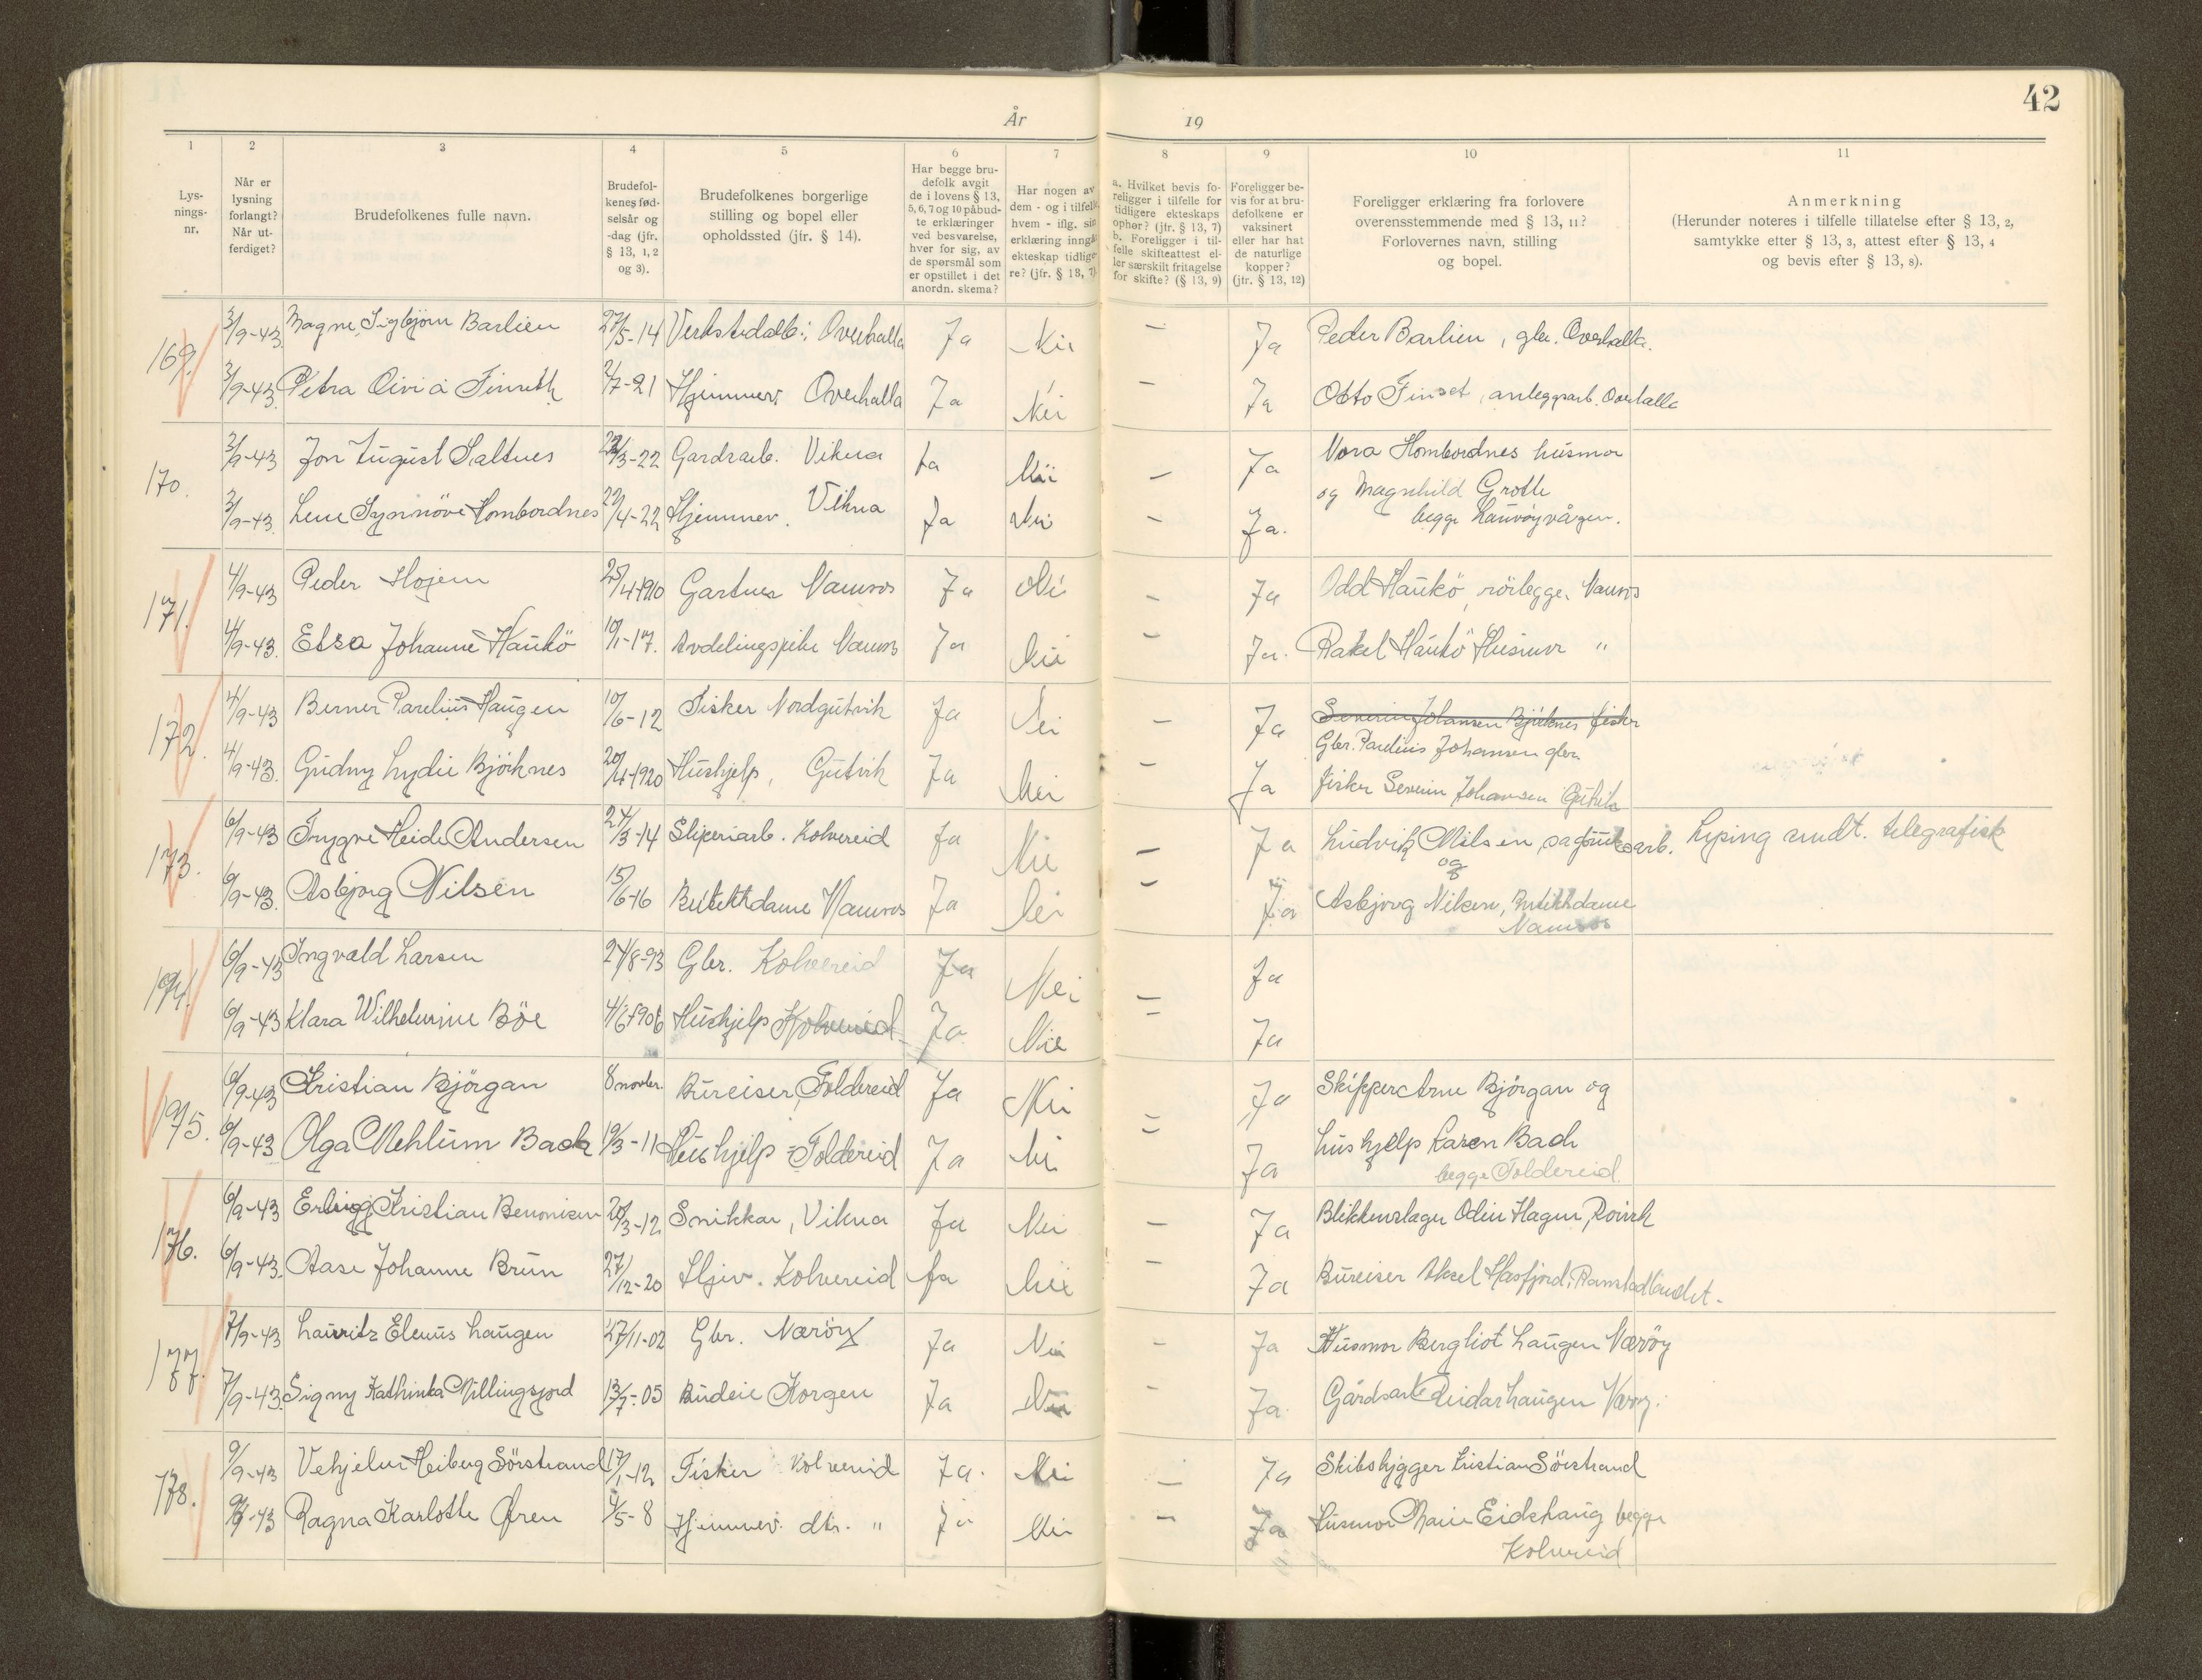 42
År 19
1 2 3 4 5 6 7 8 9 10 11
Lys-
nings-
nr.
Når er
lysning
forlangt?
Når ut-
ferdiget?
Brudefolkenes fulle navn.
Brudefol-
kenes fød-
selsår og
-dag (jfr.
§ 13, 1, 2
og 3).
Brudefolkenes borgerlige
stilling og bopel eller
opholdssted (jfr. § 14).
Har begge bru-
defolk avgit
de i lovens § 13,
5, 6, 7 og 10 påbud-
te erklæringer
ved besvarelse,
hver for sig, av
de spørsmål som
er opstillet i det
anordn. skema?
Har nogen av
dem - og i tilfelle
hvem - iflg. sin
erklæring inngå
ekteskap tidlige-
re? (jfr. § 18, 7)
a. Hvilket bevis fo-
religger i tilfelle for
tidligere ekteskaps
ophør? (jfr. § 13, 7)
b. Foreligger i til-
felle skifteattest el-
ler særskilt fritagelse
for skifte? (§ 13, 9)
Foreligger be-
vis for at bru-
defolkene er
vaksinert
eller har hat
de naturlige
kopper?
(jfr. § 13, 12)
Foreligger erklæring fra forlovere
overensstemmende med § 13, 11?
Forlovernes navn, stilling
og bopel.
Anmerkning
(Herunder noteres i tilfelle tillatelse efter § 13, 2,
samtykke efter § 13, 3, attest efter § 13, 4
og bevis efter § 13, 8).
169. 3/9-43 Magne Sigbjörn Barlien 27/5-14 Verkstedarb. Overhalla Ja Nei — Ja Peder Barlien, gbr. Overhalla.
3/9-43 Petra Oivia 2/7-21 Hjemmev. Overhalla Ja Nei — Ja Otto Finset, anleggsarb. Overhalla
170. 3/9-43 Jon August Saltnes /3-22 Gardsarb. Vikna Ja Nei — Ja Nora Hombordnes husmor
og Magnhild Grotle
3/9-43 Lene Synnöve Hombordnes 29/4-22 Hjemmev. Vikna Ja Nei — Ja. begge Lauvöyvågen.
171. 4/9-43 Peder Hojem 25/4-1910 Gartner Namsos Ja Nei — Ja Odd Haukö, rörlegger Namsos
4/9-43 Elsa Johanne Haukö 10/1-17. Avdelingspike Namsos Ja Nei — Ja. Rakel Haukö Husmor "
172. 4/9-43 Berner Parelius Haugen 10/6-12 Fisker Nordgutvik Ja Nei — Ja Severin Johansen Björknes fisker
Gbr. Paulius Johansen gbr.
4/9-43 Gudny Lydie Björknes 20/4-1920 Hushjelp, Gutvik Ja Nei — Ja fisker Severin Johansen Gutvik
173. 6/9-43 Trygve Heide Andersen 24/3-14 Sliperiarb. Kolvereid Ja Nei — Ja Ludvik Nilsen, sagbruksarb. Lysing sendt. telegrafisk
og
6/9-43 Asbjorg Nilsen 15/6-16 Butikkdame Namsos Ja Nei — Ja Asbjorg Nilsen, Butikkdame
Namsos
174. 6/9-43 Ingvald Larsen 24/8-93 Gbr. Kolvereid Ja Nei — Ja
6/9-43 Klara Wilhelmine Böe 4/6-1906 Hushjelp Kolvereid Ja Nei — Ja
175. 6/9-43 Kristian Björgan 8 novbr. Bureiser, Foldereid Ja Nei — Ja Skipper Arne Björgan og
6/9-43 Olga Mehlum Bach 19/3-11 Hushjelp - Foldereid Ja Nei — Ja hushjelp Karen Bach
begge Foldereid
176. 6/9-43 Erling Kristian Benonisen 20/3-12 Snikkar, Vikna Ja Nei — Ja Blikkenslager Odin Hagen, Rörvik
6/9-43 Aase Johanne Brun 27/12-20 Hjev. Kolvereid Ja Nei — Ja Bureiser Aksel Hasfjord, Ramstadlandet.
177. 7/9-43 Lauritz Elenus Laugen 27/11-02 Gbr. Næröy Ja Nei — Ja Husmor Bergliot Laugen Næröy
7/9-43 Signy Kathinka Villingsjord 13/7-05 Budeie Korgen Ja Nei — Ja. Gårdsarb. Reidar Laugen Næröy.
178. 9/9-43 Vehjelm Heiberg Sörstrand 17/1-12 Fisker Kolvereid Ja. Nei — Ja Skibsbygger Kristian Sörstrand
9/9-43 Ragna Karlotte Øren 4/5-8 Hjemmev. dtr. " Ja Nei — Ja Husmor Marie Eidshaug begge
Kolvereid